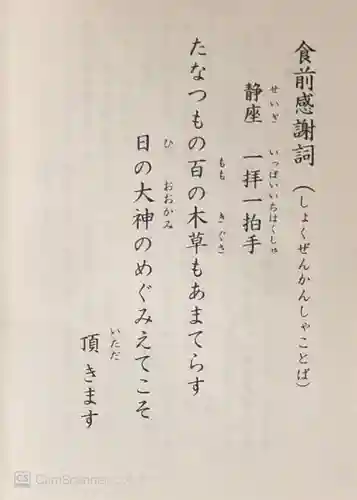 食前感謝詞（しょくぜんかんしゃことば）
静座　一拝一拍手
せいざ　いっぱいいちはくしゅ
たなつもの百の木草もあまてらす
もも　きぐさ
日の大神のめぐみえてこそ
ひ　おおかみ
頂きます
いただ
CS CamScanner